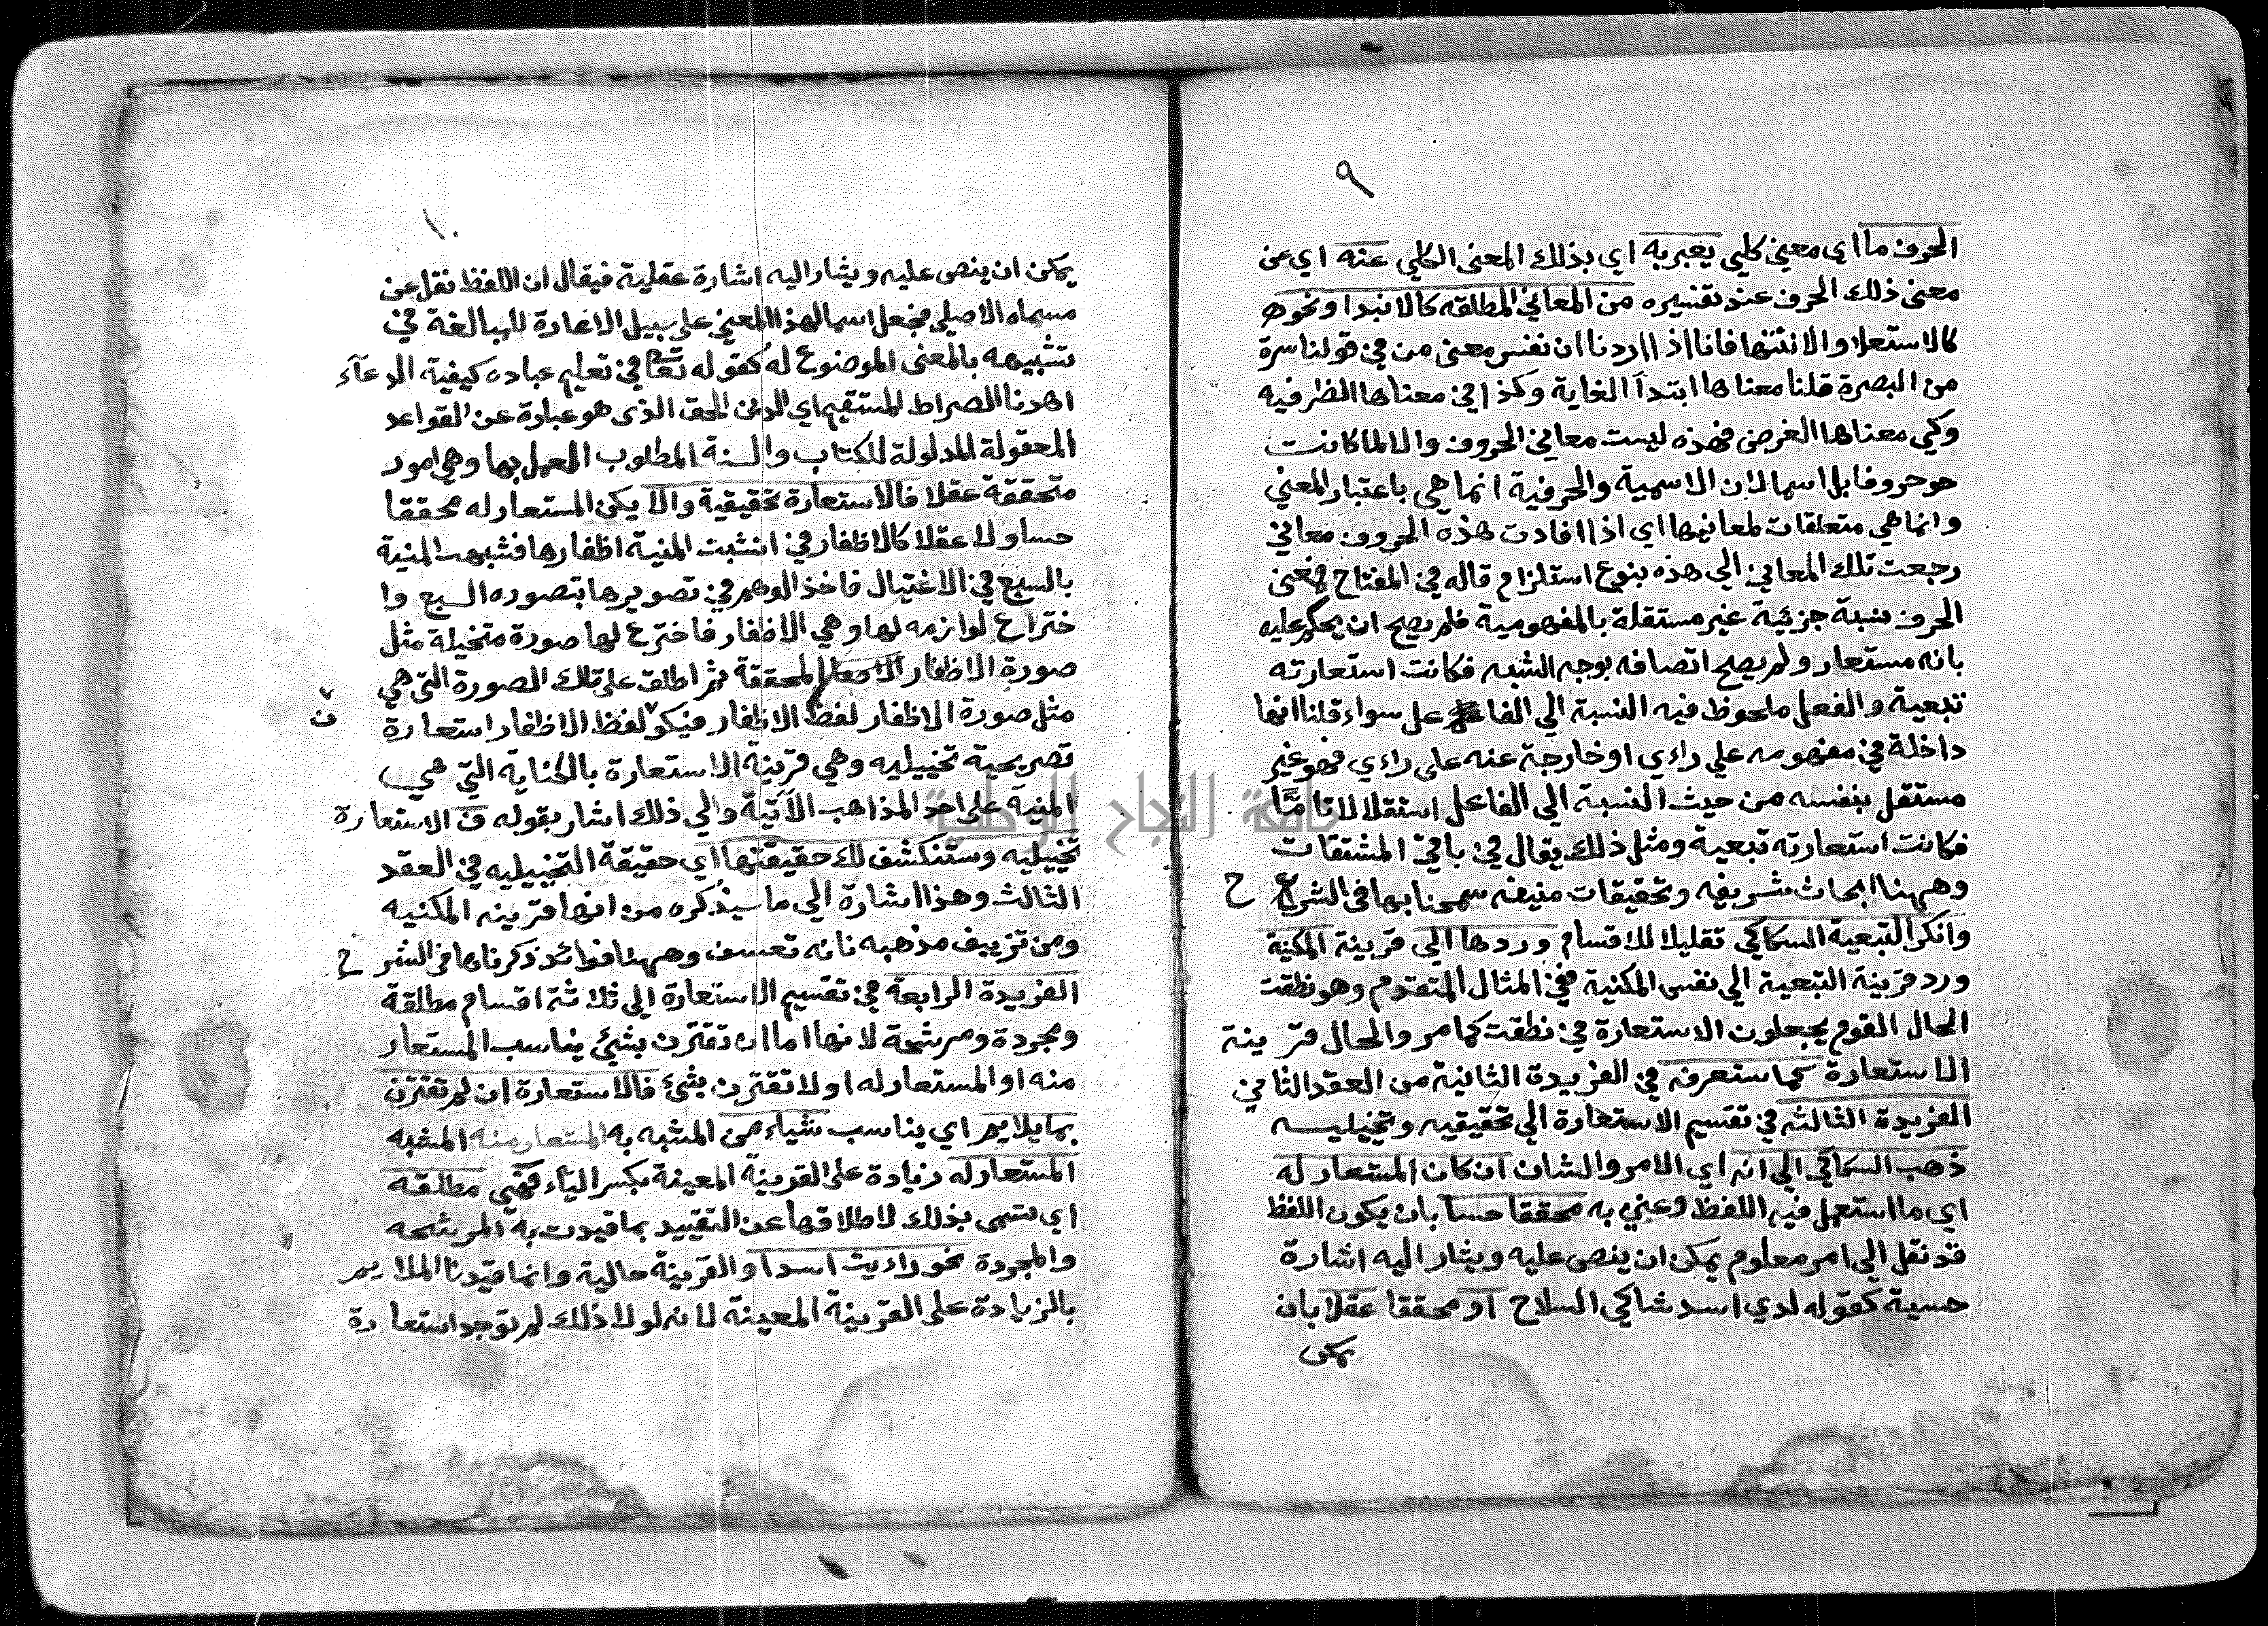 ٩
الحرف ما اى معنى كلي يعبر به اي بذلك المعنى الكلي عنه اي عن
معنى ذلك الحرف عند تفسيره من المعاني المطلقه كالابتدا ونحوه
كالاستعلا والانتها فانا اذا اردنا ان نفسر معنى من في قولنا سرة
من البصرة قلنا معناها ابتدآ الغاية وكذا في معناها الظرفيه
وكي معناها الغرض فهذه ليست معاني الحروف والا لما كانت
حروفا بل اسما لان الاسمية والحرفية انما هي باعتبار المعني
وانما هي متعلقات لمعانيها اي اذا افادت هذه الحروف معاني
رجعت تلك المعاني الي هذه بنوع استلزام قاله في المفتاح فمعنى
الحرف نسبة جزئية غير مستقلة بالمفهومية فلم يصح ان يحكم عليه
بانه مستعار ولم يصح اتصافه بوجه الشبه فكانت استعارته
تبعية والفعل ملحوظ فيه النسبة الي الفاعل على سواء قلنا انها
داخلة في مفهومه علي راءي او خارجة عنه على راءي فهو غير
مستقل بنفسه من حيث النسبة الي الفاعل استقلالا تامًّا
فكانت استعارته تبعية ومثل ذلك يقال في باقي المشتقات
وههنا ابحاث شريفه وتحقيقات منيفه سمحنا بها في الشرح ح
وانكر التبعية السكاكي تقليلا للاقسام وردها الي قرينة المكنية
ورد قرينة التبعية الي نفس المكنية ففي المثال المتقدم وهو نطقت
الحال القوم يجعلون الاستعارة في نطقت كما مر والحال قرينة
الاستعارة كما ستعرفه في الفريدة الثانية من العقد الثاني
الفريدة الثالثه في تقسيم الاستعارة الي تحقيقيه وتخييليه
ذهب السكاكي الي انه اي الامر والشان ان كان المستعار له
اي ما استعمل فيه اللفظ وعني به محققا حسا بان يكون اللفظ
قد نقل الي امر معلوم يمكن ان ينص عليه ويشار اليه اشارة
حسية كقوله لدي اسد شاكي السلاح او محققا عقلا بان
يمكن
١٠
يمكن ان ينص عليه ويشار اليه اشارة عقلية فيقال ان اللفظ نقل عن
مسماه الاصلي فجعل اسما لهذا المعني على سبيل الاعارة للمبالغة في
تشبيهه بالمعنى الموضوع له كقوله تعا في تعليم عباده كيفية الدعآء
اهدنا الصراط المستقيم اي الدين الحق الذي هو عبارة عن القواعد
المعقولة المدلولة للكتاب والسنة المطلوب العمل بها وهي امور
متحققة عقلا فالاستعارة تحقيقية والا يكن المستعار له محققا
حسا ولا عقلا كالاظفار في انشبت المنية اظفارها فشبهه المنية
بالسبع في الاغتيال فاخذ الوهم في تصويرها بتصوره السبع وا
ختراع لوازمه لها وهي الاظفار فاخترع لها صورة متخيلة مثل
صورة الاظفار المحققة ثم اطلق على تلك الصورة التى هي
مثل صورة الاظفار لفظ الاظفار فيكو لفظ الاظفار استعارة ن
تصريحية تخييليه وهي قرينة الاستعارة بالكناية التي هي
المنية على احد المذاهب الآتية والي ذلك اشار بقوله ف الاستعارة
تخييليه وستنكشف لك حقيقتها اي حقيقة التخييليه في العقد
الثالث وهذا اشارة الي ما سيذكره من انها قرينه المكنيه
ومن تزييف مذهبه بانه تعسف وههنا فوائد ذكرناها في الشرح
الفريدة الرابعة في تقسيم الاستعارة الي ثلاثة اقسام مطلقة
ومجردة ومرشحة لانها اما ان تقترن بشئ يناسب المستعار
منه او المستعار له او لا تقترن بشئ فالاستعارة ان لم تقترن
بما يلايم اي يناسب شياء من المشبه به المستعار منه المشبه
المستعار له زيادة على القرينة المعينة بكسر الياء فهي مطلقه
اي تسمى بذلك لاطلاقها عن التقييد بما قيدت به المرشحه
والمجردة نحو راءيت اسدا والقرينة حالية وانما قيدنا الملايم
بالزيادة على القرينة المعينة لانه لولا ذلك لم توجد استعارة
جامعة النجاح الوطنية